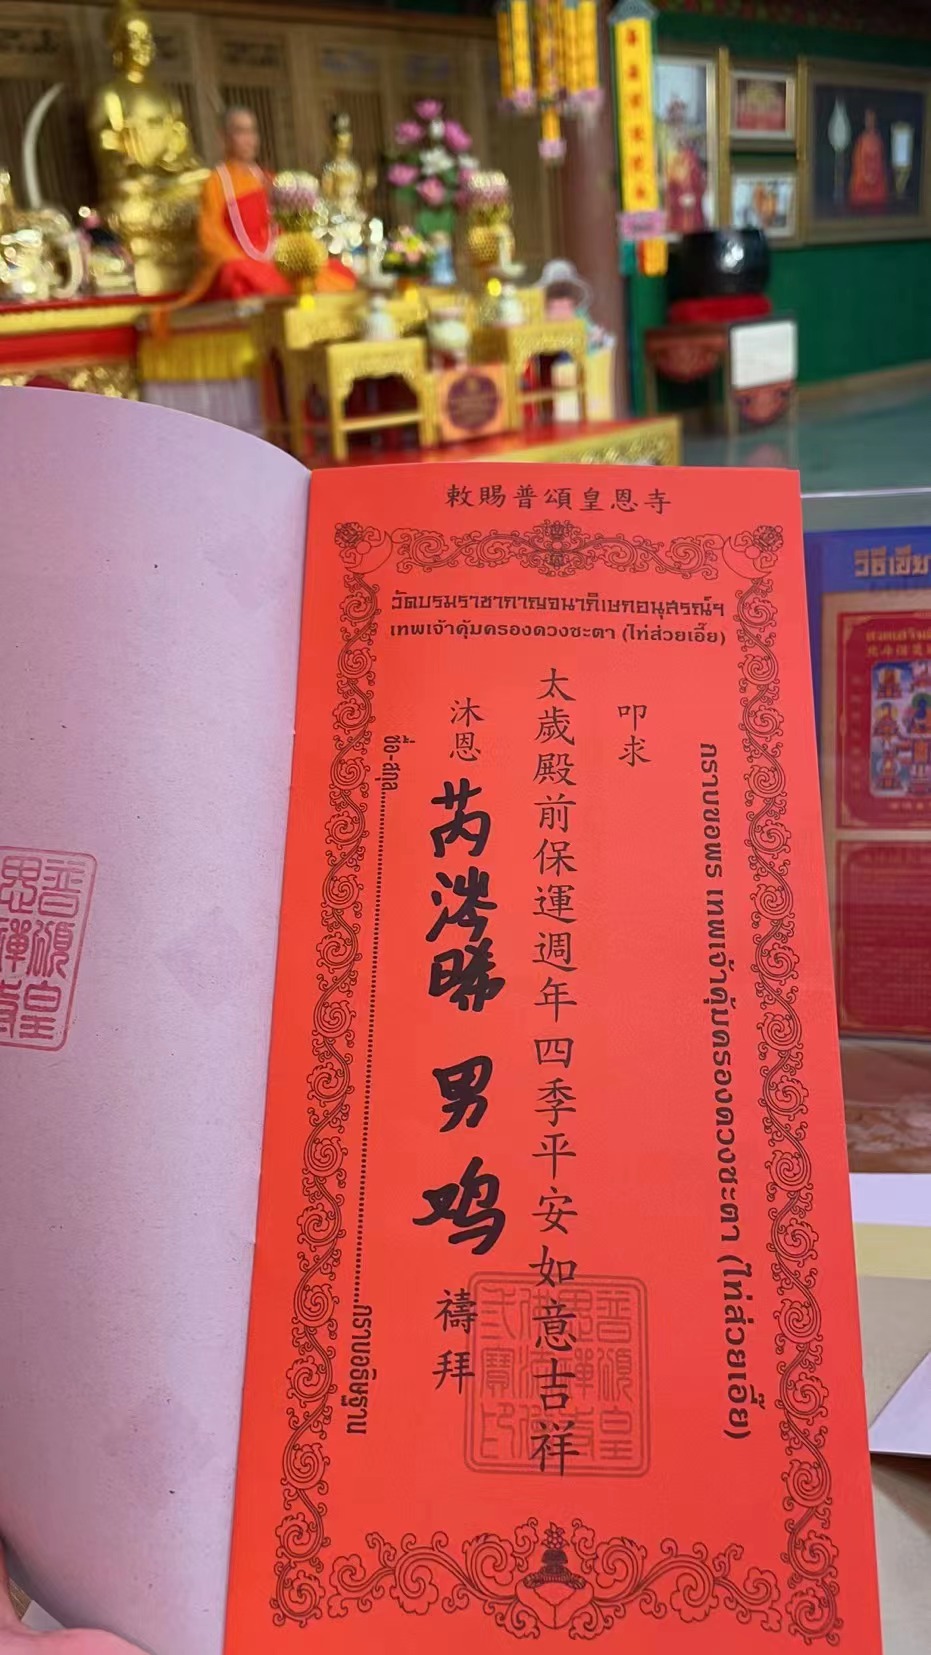 敕賜普頌皇恩寺
วัดบรมราชากาญจนาภิเษกอนุสรณ์ฯ
เทพเจ้าคุ้มครองดวงชะตา (ไท่ส่วยเอี๊ย)
กราบขอพร เทพเจ้าคุ้มครองดวงชะตา (ไท่ส่วยเอี๊ย)
叩求
太歲殿前保運週年四季平安如意吉祥
沐恩 芮涔晞 男 鸡 禱拜
ชื่อ-สกุล กราบอธิษฐาน
วิธีเขีย